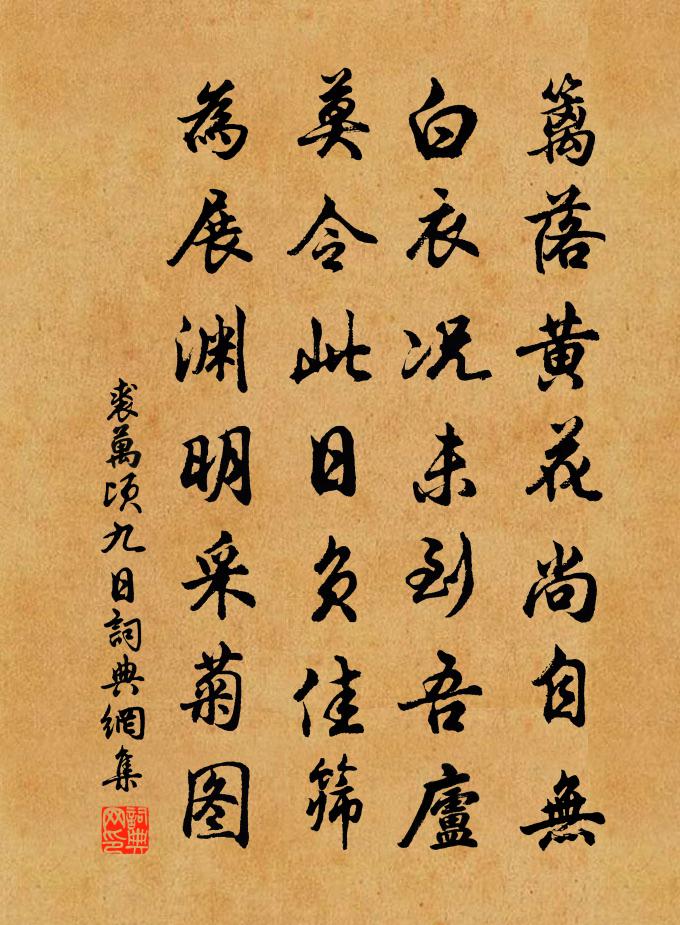 籬落黄花尚自無
白衣况未到吾廬
莫令此日負佳節
為展渊明采菊图
裘萬頃九日詞典網集
詞典网印